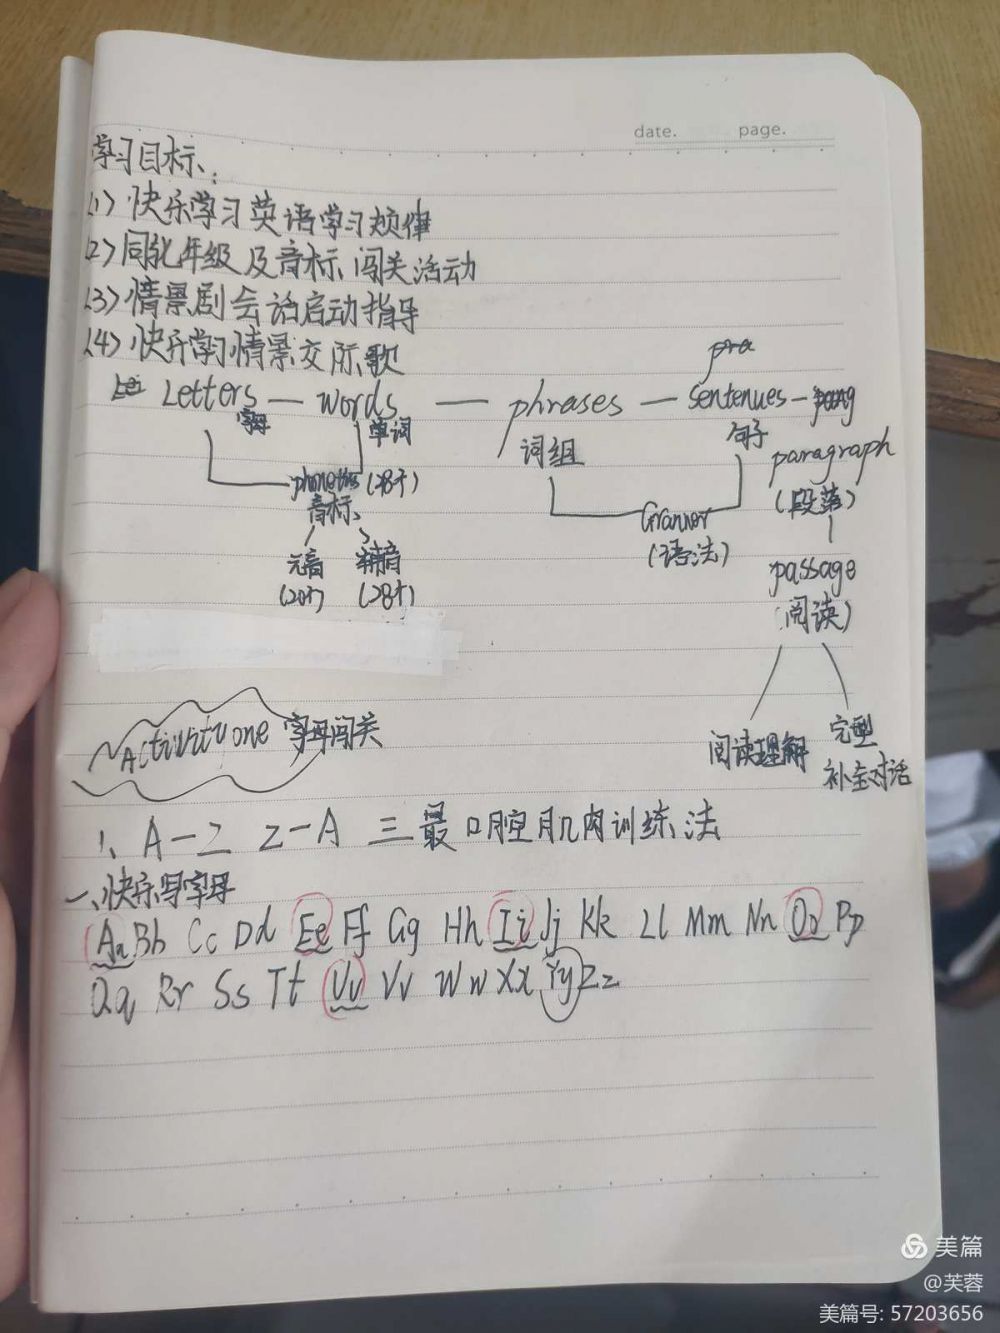 date. page.
学习目标:
(1) 快乐学习英语学习规律
(2) 同化年级及音标闯关活动
(3) 情景剧会话启动指导
(4) 快乐学习情景交际歌
pra
Letters — words — phrases — Sentenues —
字母 单词 词组 句子
paragraph
(段落)
音标 (48个)
Grammer
(语法)
元音 辅音
(20个) (28个)
passage
(阅读)
Activity one 字母闯关
阅读理解 完型
补全对话
1、A-Z Z-A 三最口腔肌肉训练法
一、快乐写字母
Aa Bb Cc Dd Ee Ff Gg Hh Ii Jj Kk Ll Mm Nn Oo Pp
Qq Rr Ss Tt Uu Vv Ww Xx Yy Zz
美篇
@芙蓉
美篇号: 57203656